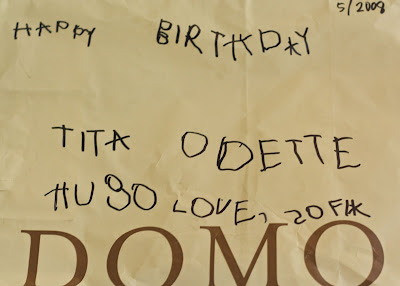 5/2008
HAPPY BIRTHDAY
TITA ODETTE
HUGO LOVE, ZOFIA
DOMO